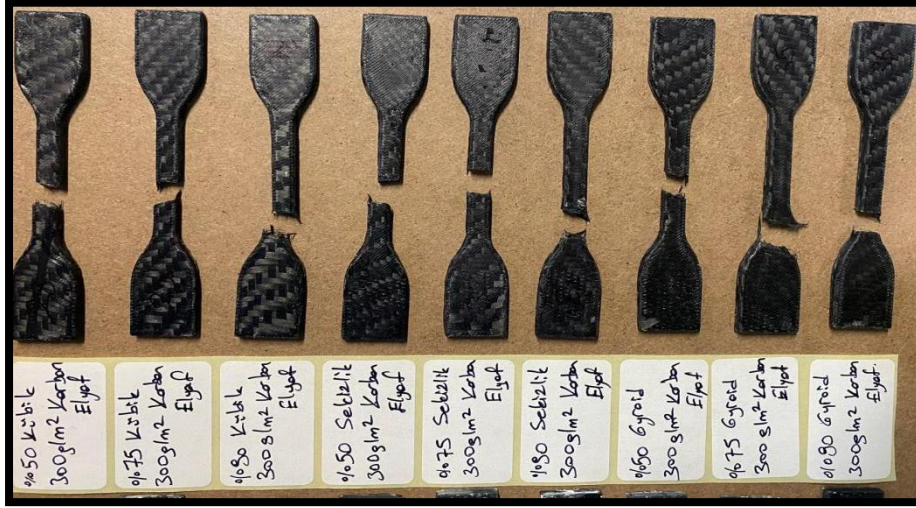 %50 Kübik
300g/m² Karbon
Elyaf
%75 Kübik
300g/m² Karbon
Elyaf
%90 Kübik
300g/m² Karbon
Elyaf
%50 Sekizlik
300g/m² Karbon
Elyaf
%75 Sekizlik
300g/m² Karbon
Elyaf
%90 Sekizlik
300g/m² Karbon
Elyaf
%50 Gyroid
300g/m² Karbon
Elyaf
%75 Gyroid
300g/m² Karbon
Elyaf
%90 Gyroid
300g/m² Karbon
Elyaf